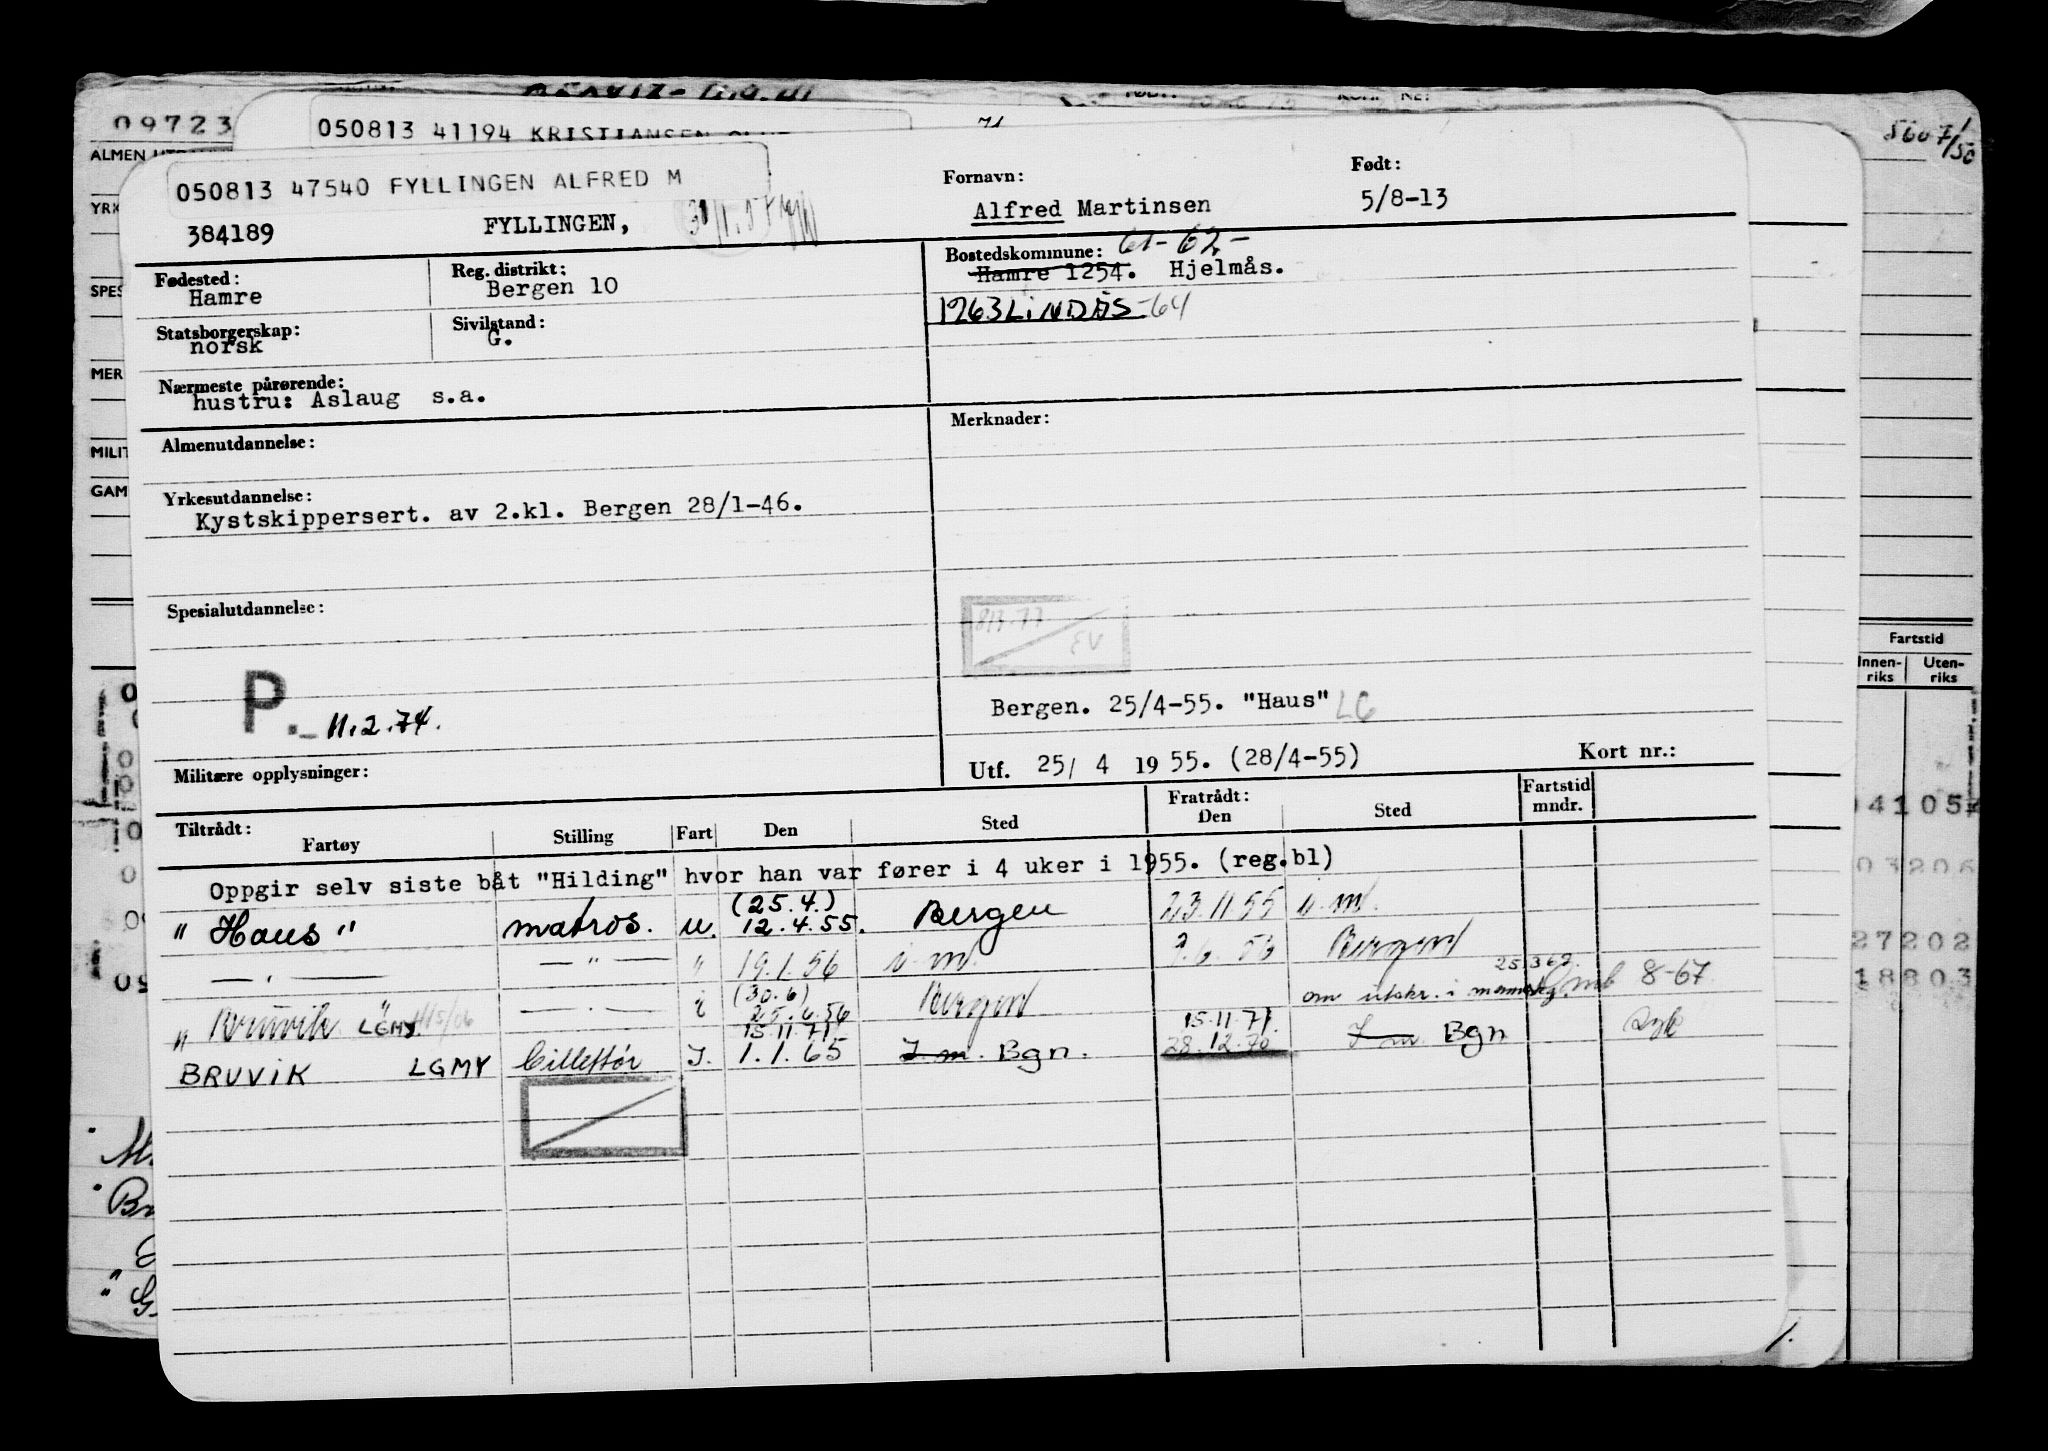 09723
5607/50
050813 41194 KRISTIANSEN
050813 47540 FYLLINGEN ALFRED M
384189 FYLLINGEN,
Fornavn: Alfred Martinsen
Født: 5/8-13
Fødested: Hamre
Reg. distrikt: Bergen 10
Bostedskommune: 61-62-
Hamre 1254. Hjelmås.
1963 LiNDÅS-64
Statsborgerskap: norsk
Sivilstand: G.
Nærmeste pårørende:
hustru: Aslaug s.a.
Almenutdannelse:
Merknader:
Yrkesutdannelse:
Kystskippersert. av 2.kl. Bergen 28/1-46.
Spesialutdannelse:
P. 11.2.74.
Bergen. 25/4-55. "Haus" LG
Militære opplysninger:
Utf. 25/ 4 1955. (28/4-55) Kort nr.:
Tiltrådt: Fratrådt:
Fartøy Stilling Fart Den Sted Den Sted Fartstid mndr.
Oppgir selv siste båt "Hilding" hvor han var fører i 4 uker i 1955. (reg.bl)
(25.4.)
" Haus " matros. u. 12.4.55. Bergen 23.11.55 i.m.
— " — — " — " 19.1.56 i.m. 56 Bergen
(30.6) 25.362.
" Bruvik " LGMY — " — i 25.6.56 Bergen om utskr. i mb 8-67
15.11.71 15.11.71.
BRUVIK LGMY Billettør I. 1.1.65 I m. Bgn. 28.12.70 I m Bgn
ALMEN
YRK
SPES
MER
MILIT
GAM
Fartstid
Innenriks Utenriks
41054
03206
27202
18803